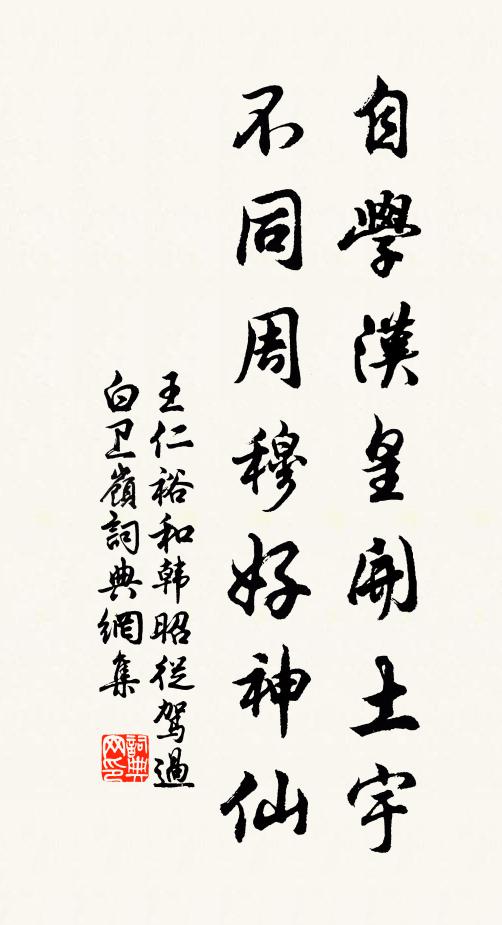 自學漢皇開土宇
不同周穆好神仙
王仁裕和韩昭從驾過
白卫嶺詞典網集
詞典
网印